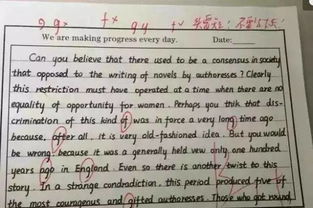 g gx f x g y t
We are making progress every day. Date:
Can you believe that there used to be a consensus in society
that opposed to the writing of novels by authoresses? Clearly
this restriction must have operated at a time when there are no
equality of opportunity for women. Perhaps you thik that dis-
crimination of this kind of was in force a very long time ago
because, after all, it is very old-fashioned idea. But you would
be wrong, because it was a generally held vew only one hundred
years ago in England. Even so there is another twist to this
story. In a strange condradiction, this period produced five of
the most courageous and gifted authoresses. Those who got round